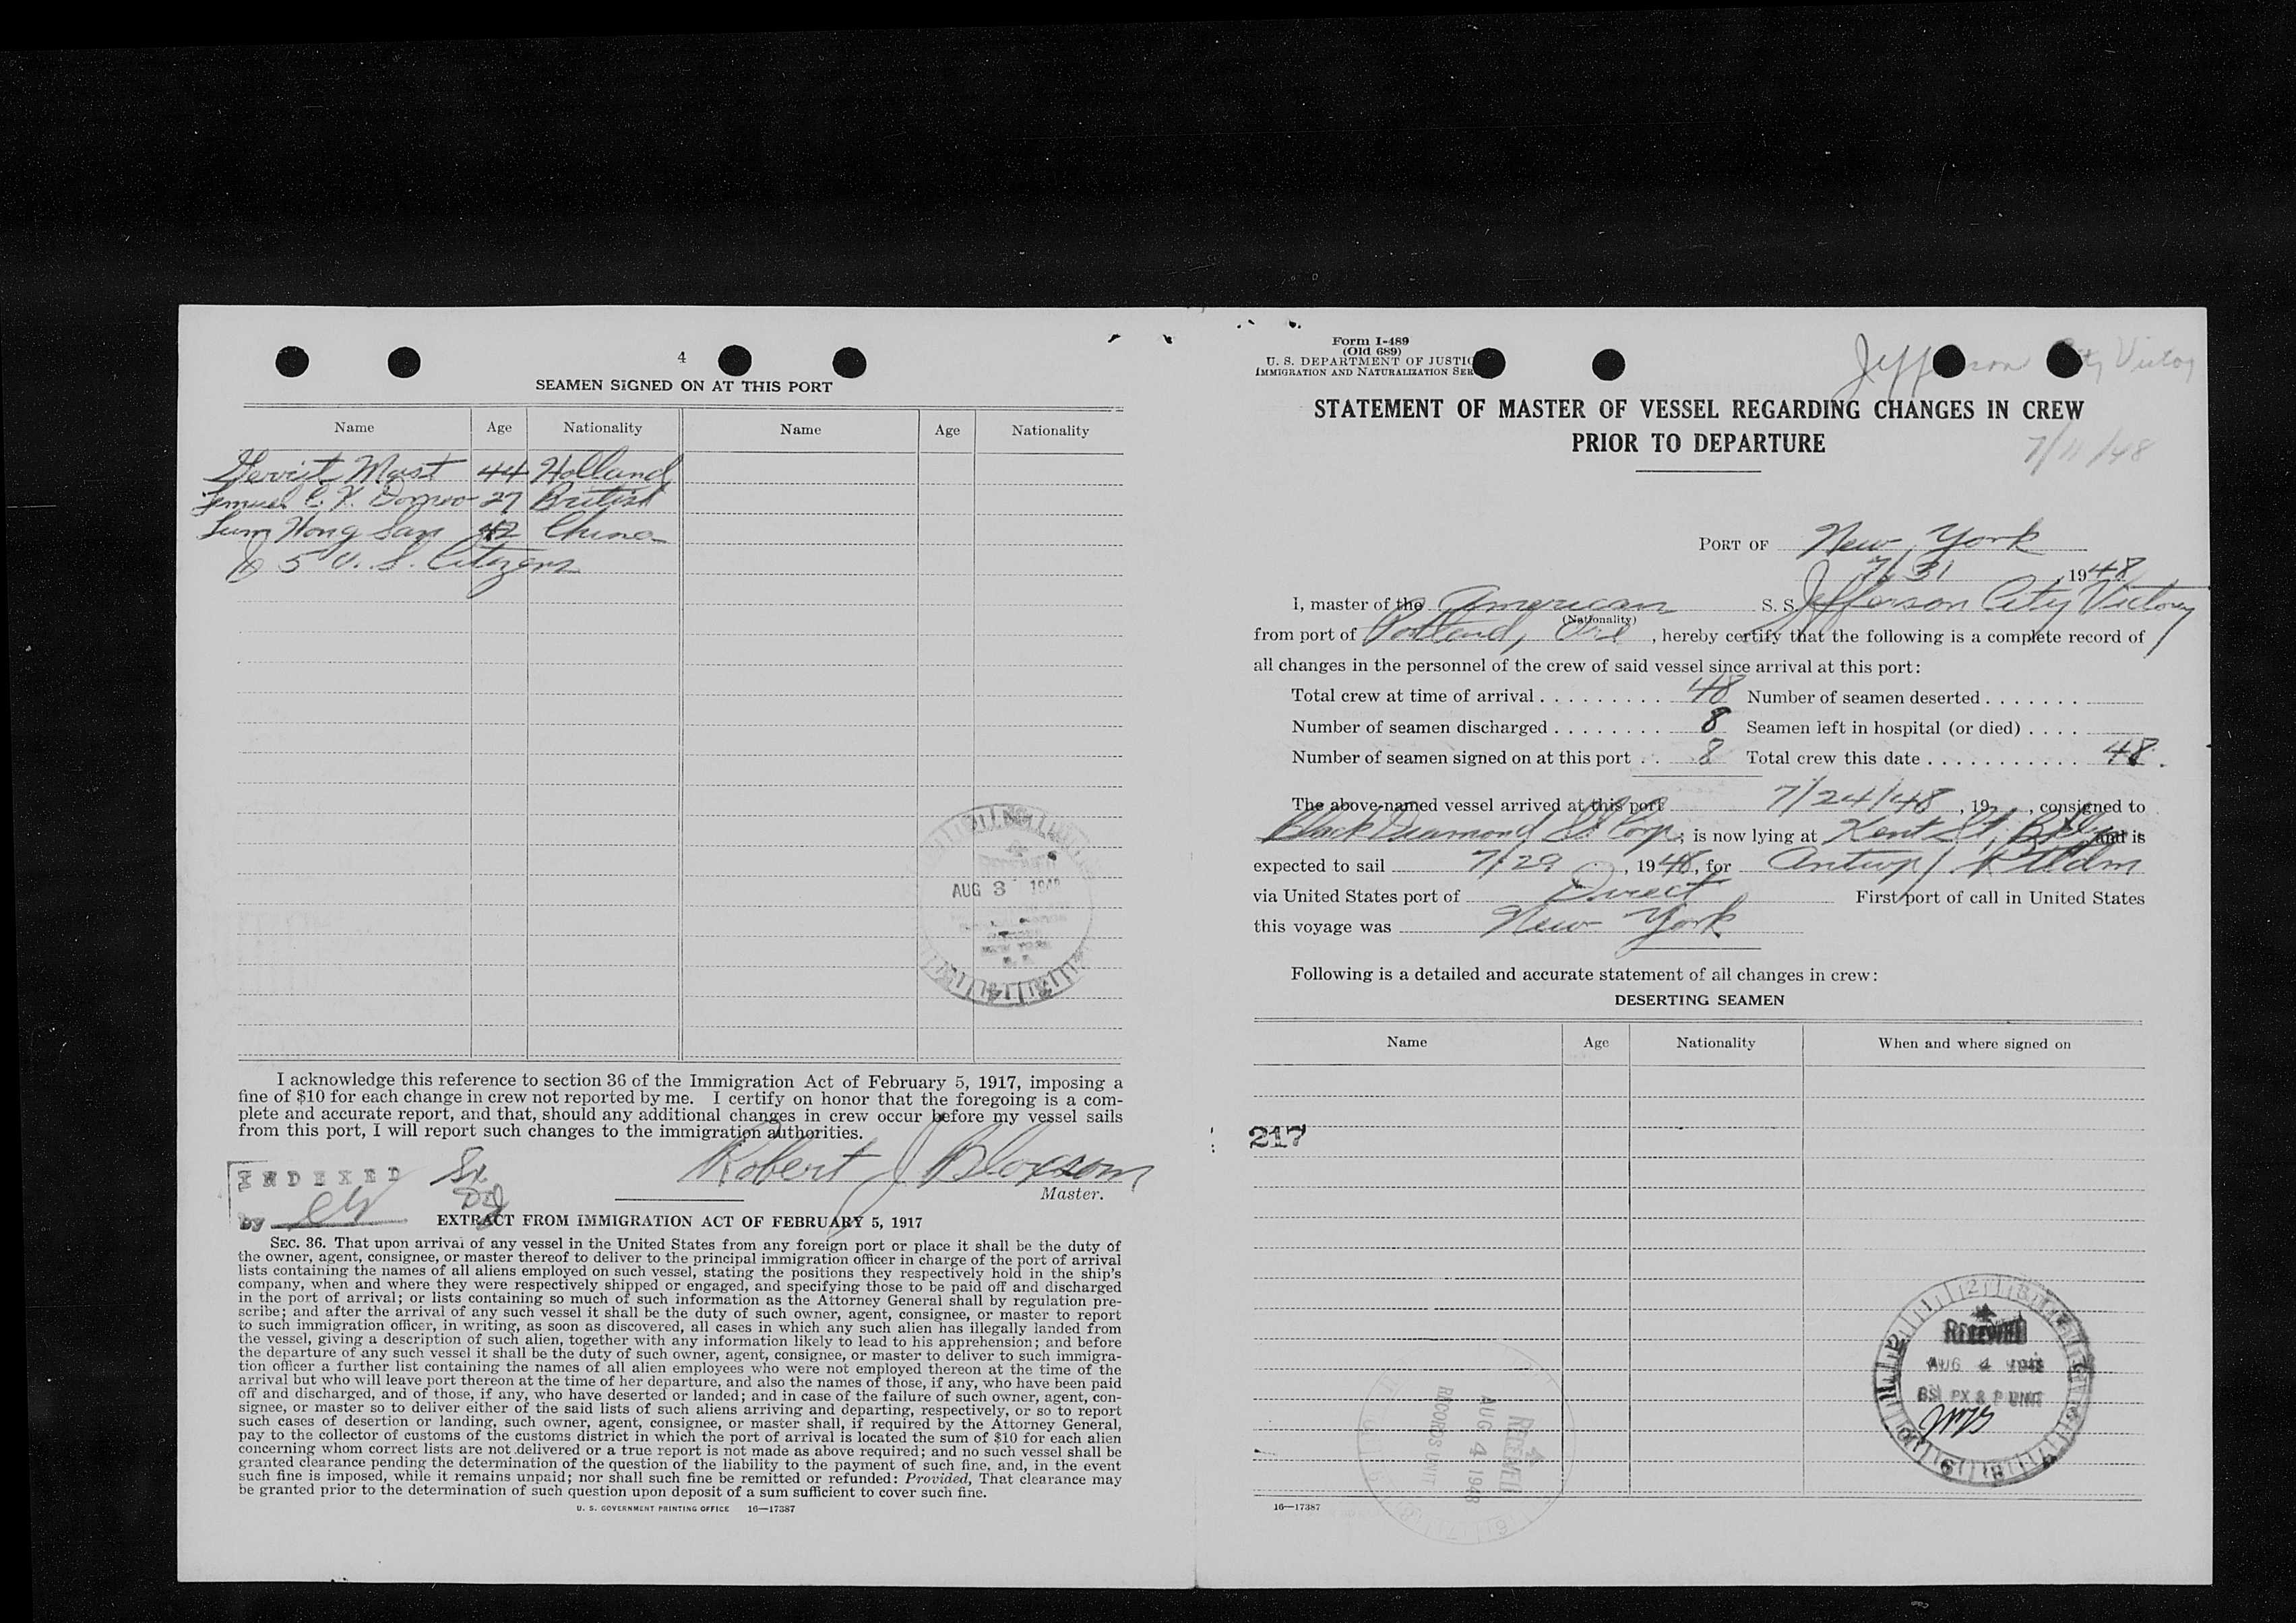 4
SEAMEN SIGNED ON AT THIS PORT
Name Age Nationality Name Age Nationality
Gerrit Mast 44 Holland
Lemuel C. 27 British
Lum Hong San 42 China
5 U. S. Citizens
AUG 3 1948
I acknowledge this reference to section 36 of the Immigration Act of February 5, 1917, imposing a
fine of $10 for each change in crew not reported by me. I certify on honor that the foregoing is a com-
plete and accurate report, and that, should any additional changes in crew occur before my vessel sails
from this port, I will report such changes to the immigration authorities.
Robert J Bloxsom
Master.
INDEXED
by
EXTRACT FROM IMMIGRATION ACT OF FEBRUARY 5, 1917
SEC. 36. That upon arrival of any vessel in the United States from any foreign port or place it shall be the duty of
the owner, agent, consignee, or master thereof to deliver to the principal immigration officer in charge of the port of arrival
lists containing the names of all aliens employed on such vessel, stating the positions they respectively hold in the ship's
company, when and where they were respectively shipped or engaged, and specifying those to be paid off and discharged
in the port of arrival; or lists containing so much of such information as the Attorney General shall by regulation pre-
scribe; and after the arrival of any such vessel it shall be the duty of such owner, agent, consignee, or master to report
to such immigration officer, in writing, as soon as discovered, all cases in which any such alien has illegally landed from
the vessel, giving a description of such alien, together with any information likely to lead to his apprehension; and before
the departure of any such vessel it shall be the duty of such owner, agent, consignee, or master to deliver to such immigra-
tion officer a further list containing the names of all alien employees who were not employed thereon at the time of the
arrival but who will leave port thereon at the time of her departure, and also the names of those, if any, who have been paid
off and discharged, and of those, if any, who have deserted or landed; and in case of the failure of such owner, agent, con-
signee, or master so to deliver either of the said lists of such aliens arriving and departing, respectively, or so to report
such cases of desertion or landing, such owner, agent, consignee, or master shall, if required by the Attorney General,
pay to the collector of customs of the customs district in which the port of arrival is located the sum of $10 for each alien
concerning whom correct lists are not delivered or a true report is not made as above required; and no such vessel shall be
granted clearance pending the determination of the question of the liability to the payment of such fine, and, in the event
such fine is imposed, while it remains unpaid; nor shall such fine be remitted or refunded: Provided, That clearance may
be granted prior to the determination of such question upon deposit of a sum sufficient to cover such fine.
U. S. GOVERNMENT PRINTING OFFICE 16—17387
Form I-489
(Old 689)
U. S. DEPARTMENT OF JUSTIC
IMMIGRATION AND NATURALIZATION SER
Jefferson City Victory
STATEMENT OF MASTER OF VESSEL REGARDING CHANGES IN CREW
PRIOR TO DEPARTURE
7/11/48
PORT OF New York
7/31, 1948
I, master of the American S. S. Jefferson City Victory
(Nationality)
from port of Portland, Ore, hereby certify that the following is a complete record of
all changes in the personnel of the crew of said vessel since arrival at this port:
Total crew at time of arrival 48 Number of seamen deserted
Number of seamen discharged 8 Seamen left in hospital (or died)
Number of seamen signed on at this port 8 Total crew this date 48.
The above-named vessel arrived at this port 7/24/48, 19 , consigned to
Black Diamond SS Corp; is now lying at Kent St, Bklyn and is
expected to sail 7/29, 1948, for Antwp / Rttdm
via United States port of Direct First port of call in United States
this voyage was New York
Following is a detailed and accurate statement of all changes in crew:
DESERTING SEAMEN
Name Age Nationality When and where signed on
217
RECEIVED
AUG 4 1948
BSI PX & P UNIT
RECEIVED
AUG 4 1948
RECORDS UNIT
16—17387